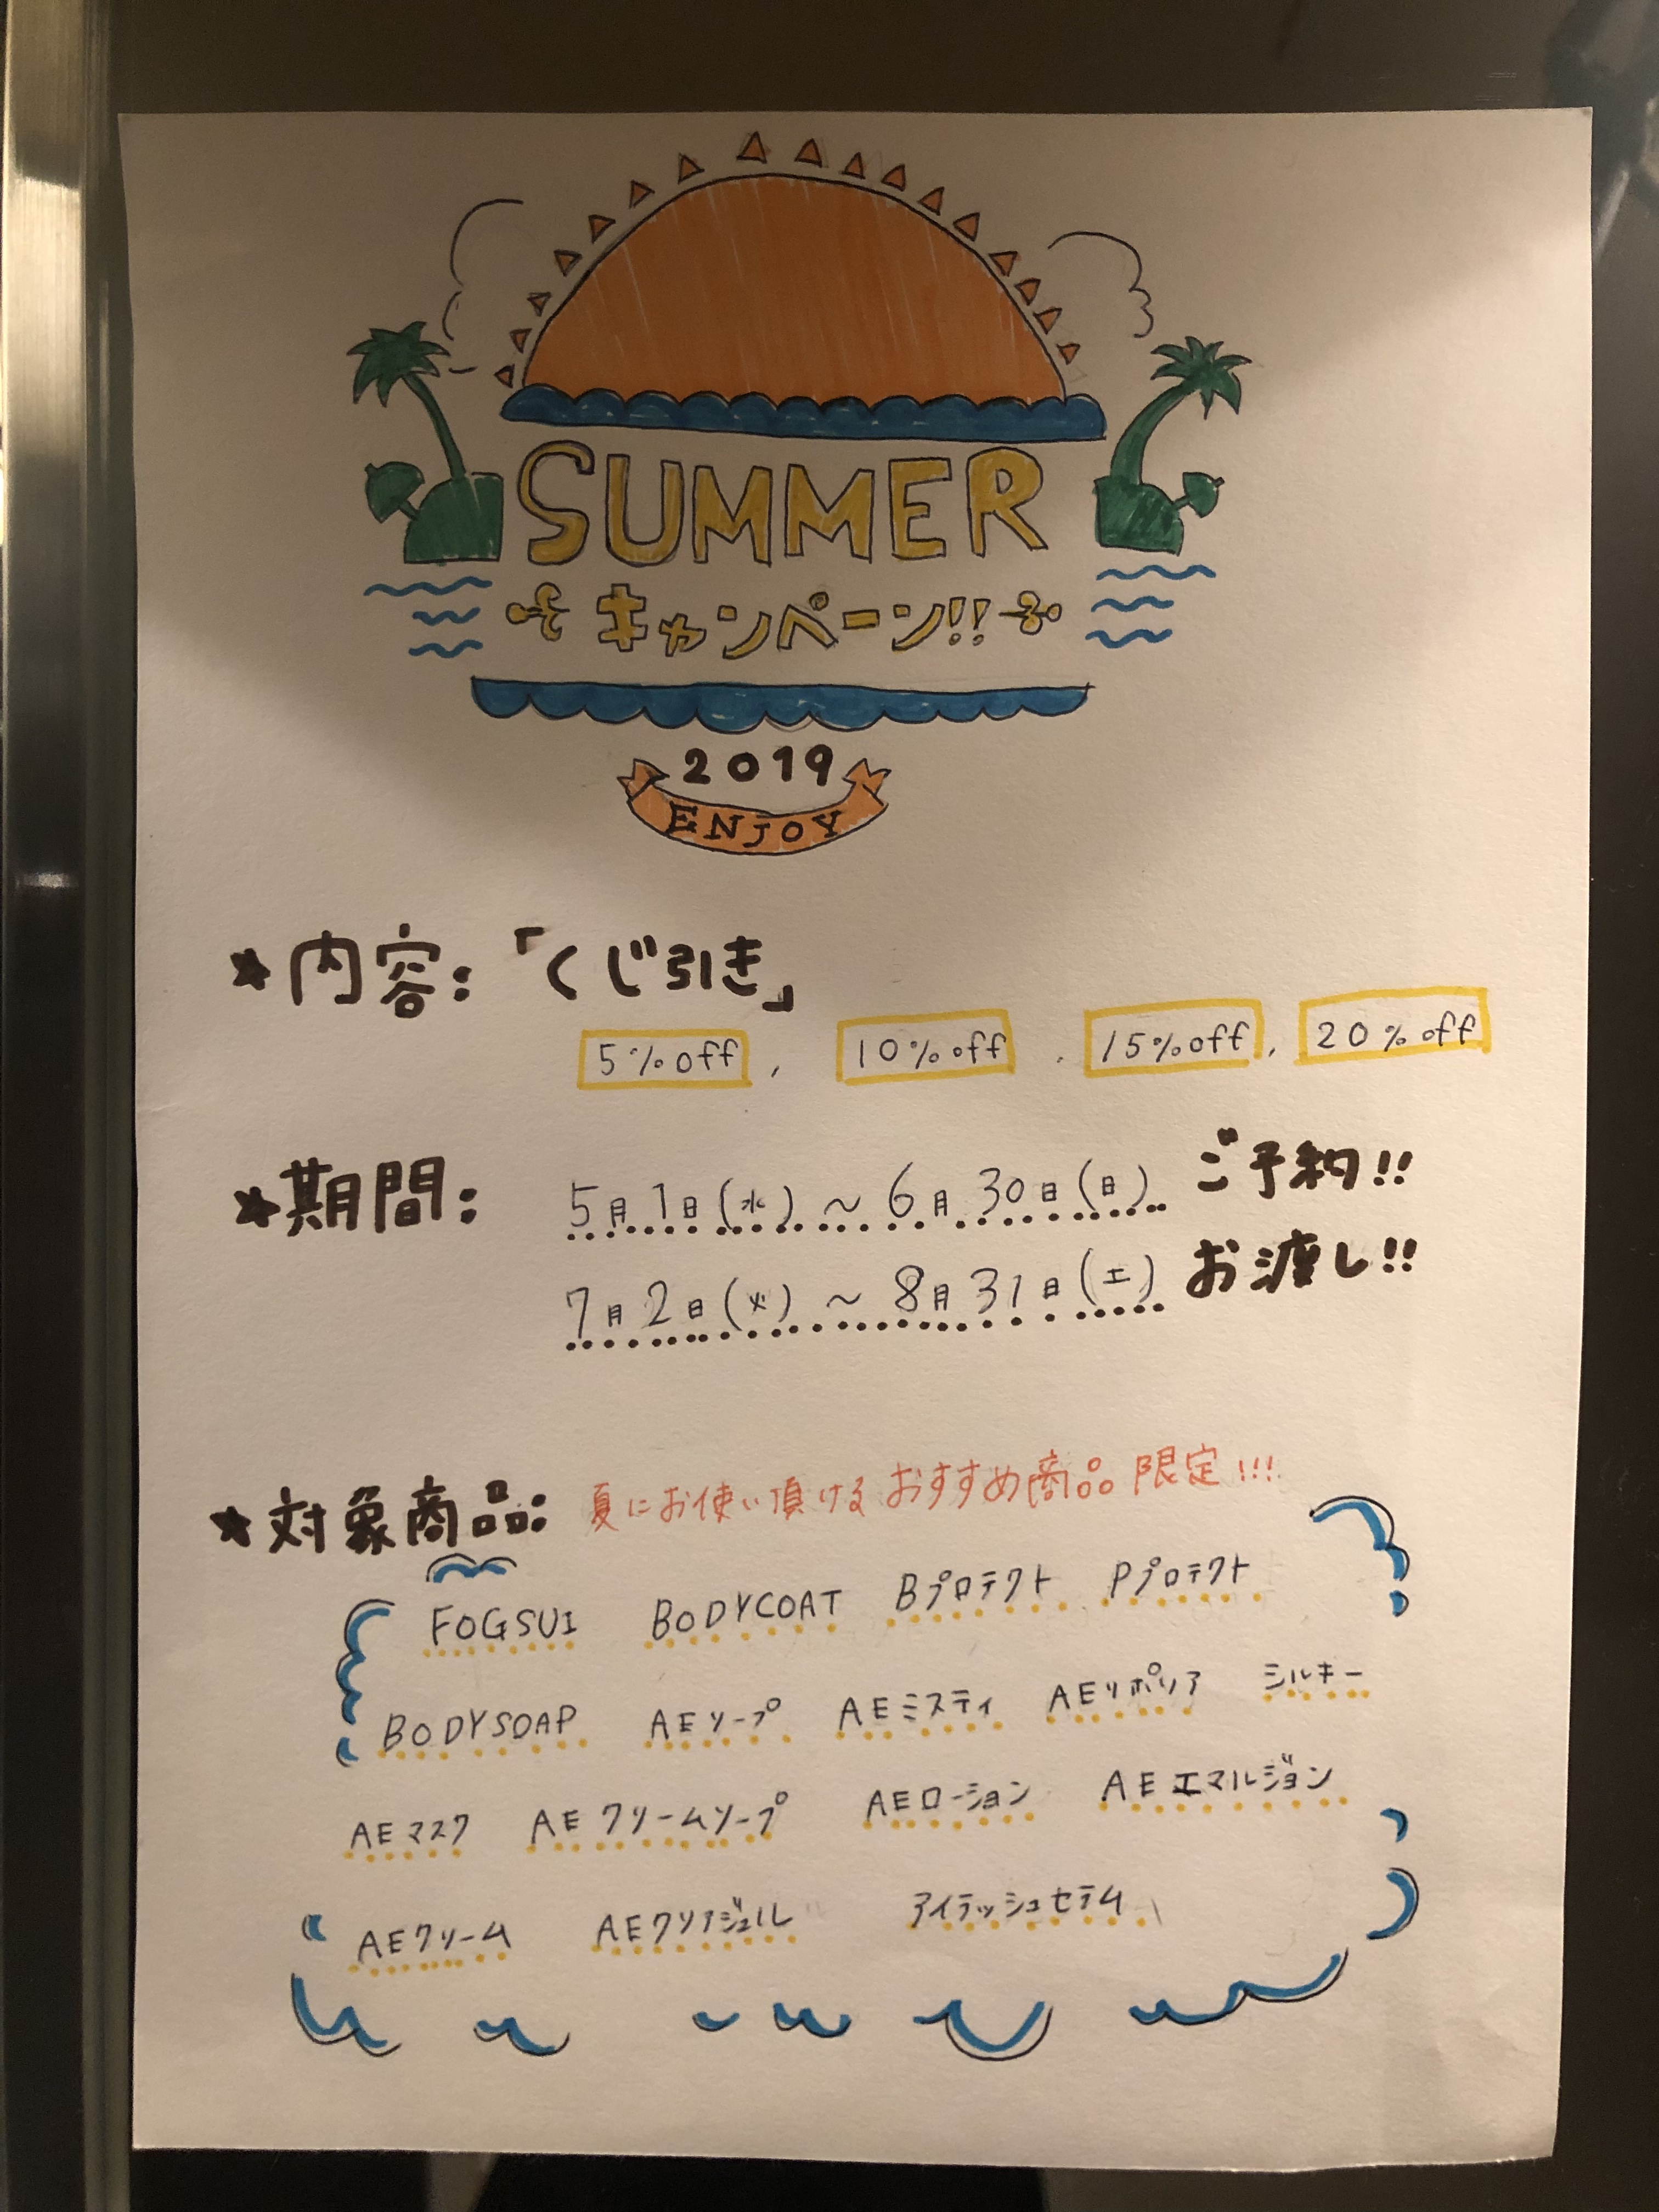 SUMMER
キャンペーン!!
2019
ENJOY
★内容:「くじ引き」
5%off, 10%off, 15%off, 20%off
★期間: 5月1日(水)~6月30日(日) ご予約!!
7月2日(火)~8月31日(土) お渡し!!
★対象商品: 夏にお使い頂けるおすすめ商品限定!!!
FOGSUI BODYCOAT Bプロテクト Pプロテクト
BODYSOAP AEソープ AEミスティ AEリポリア シルキー
AEマスク AEクリームソープ AEローション AEエマルジョン
AEクリーム AEクリアジェル アイテッシュセラム